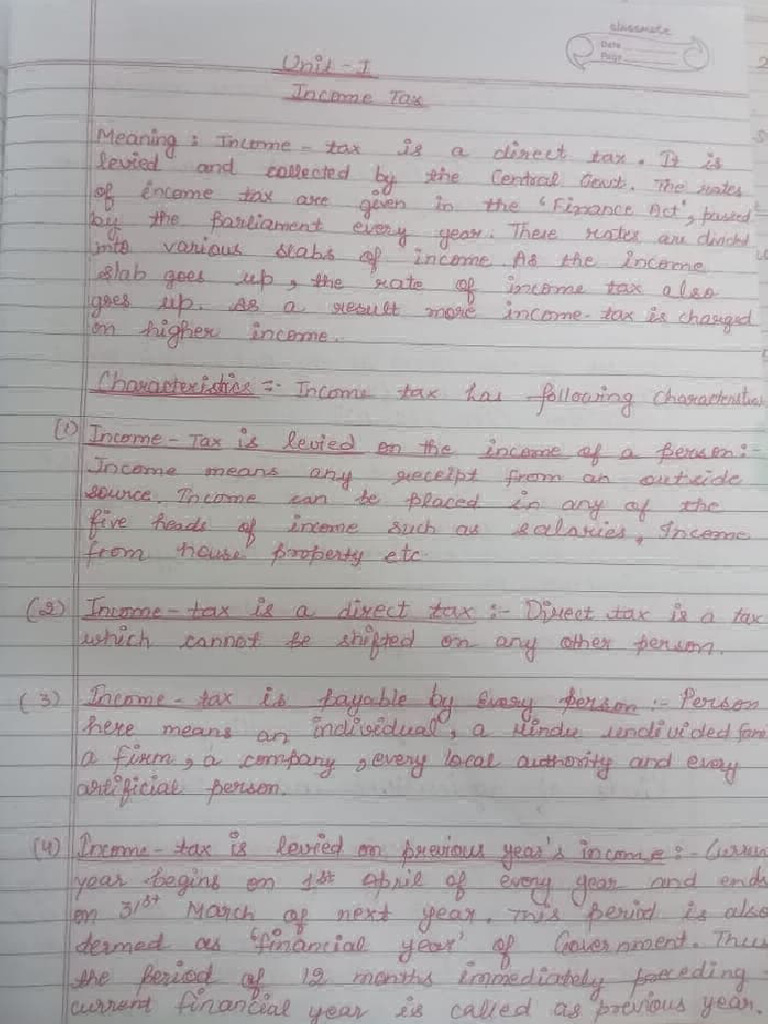 classmate
Date
Page
Unit - I
Income Tax
Meaning : Income - tax is a direct tax. It is
levied and collected by the Central Govt. The rates
of income tax are given in the 'Finance Act', passed
by the Parliament every year. These rates are divided
into various slabs of income. As the income
slab goes up, the rate of income tax also
goes up. As a result more income-tax is charged
on higher income.
Characteristics :- Income tax has following Characteristics
(1) Income - Tax is levied on the income of a person :-
Income means any receipt from an outside
source. Income can be placed in any of the
five heads of income such as salaries, Income
from house property etc.
(2) Income - tax is a direct tax :- Direct tax is a tax
which cannot be shifted on any other person.
(3) Income - tax is payable by every person :- Person
here means an individual, a Hindu undivided fam
a firm, a company, every local authority and every
artificial person.
(4) Income - tax is levied on previous year's income :- Curren
year begins on 1st April of every year and ends
on 31st March of next year. This period is also
dermed as 'financial year' of Government. Thus
the period of 12 months immediately preceding
current financial year is called as previous year.